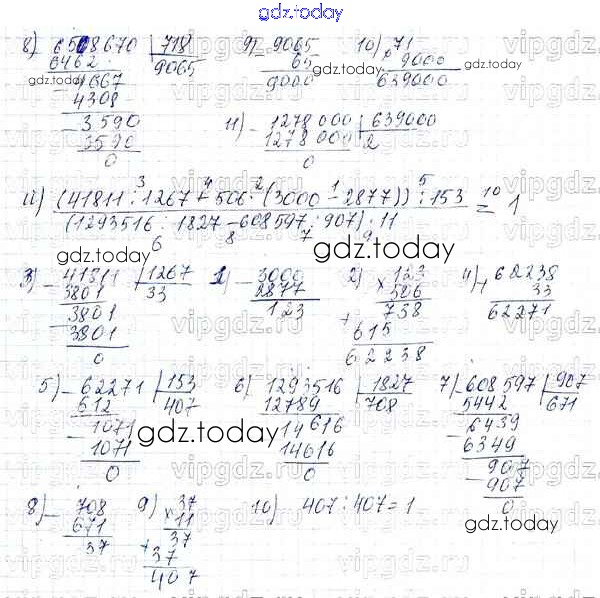 gdz.today
8) 6508670 | 718
6462 9065
4667
4308
3590
3590
0
9) - 9065
65
9000
10) × 71
9000
639000
11) - 1278000 | 639000
1278000 2
0
gdz.today
gdz.today
3 4 2 1 5
11) (41811 : 1267 + 506 · (3000 - 2877)) : 153 10
(1293516 : 1827 - 608597 : 907) · 11 = 1
6 8 7 9
gdz.today
3) - 41811 | 1267
3801 33
3801
3801
0
1) - 3000
2877
123
2) × 123
506
738
+ 615
62238
4) + 62238
33
62271
5) - 62271 | 153
612 407
1071
1071
0
6) - 1293516 | 1827
12789 708
14616
14616
0
7) - 608597 | 907
5442 671
6439
6349
907
907
0
gdz.today
gdz.today
8) - 708
671
37
9) × 37
11
37
+ 37
407
10) 407 : 407 = 1
gdz.today